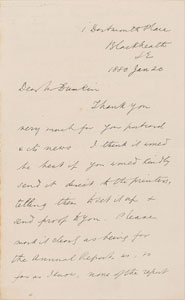 1 Dartmouth Place
Blackheath
S.E
1880 Jan 20
Dear Mr Dunkin
Thank you
very much for your postcard
& its news I think it wd
be best if you would kindly
send it direct to the printer,
telling them to set it up &
send proof to you. Please
mark it clearly as being for
the Annual Report, as, so
far as I know, none of the rept